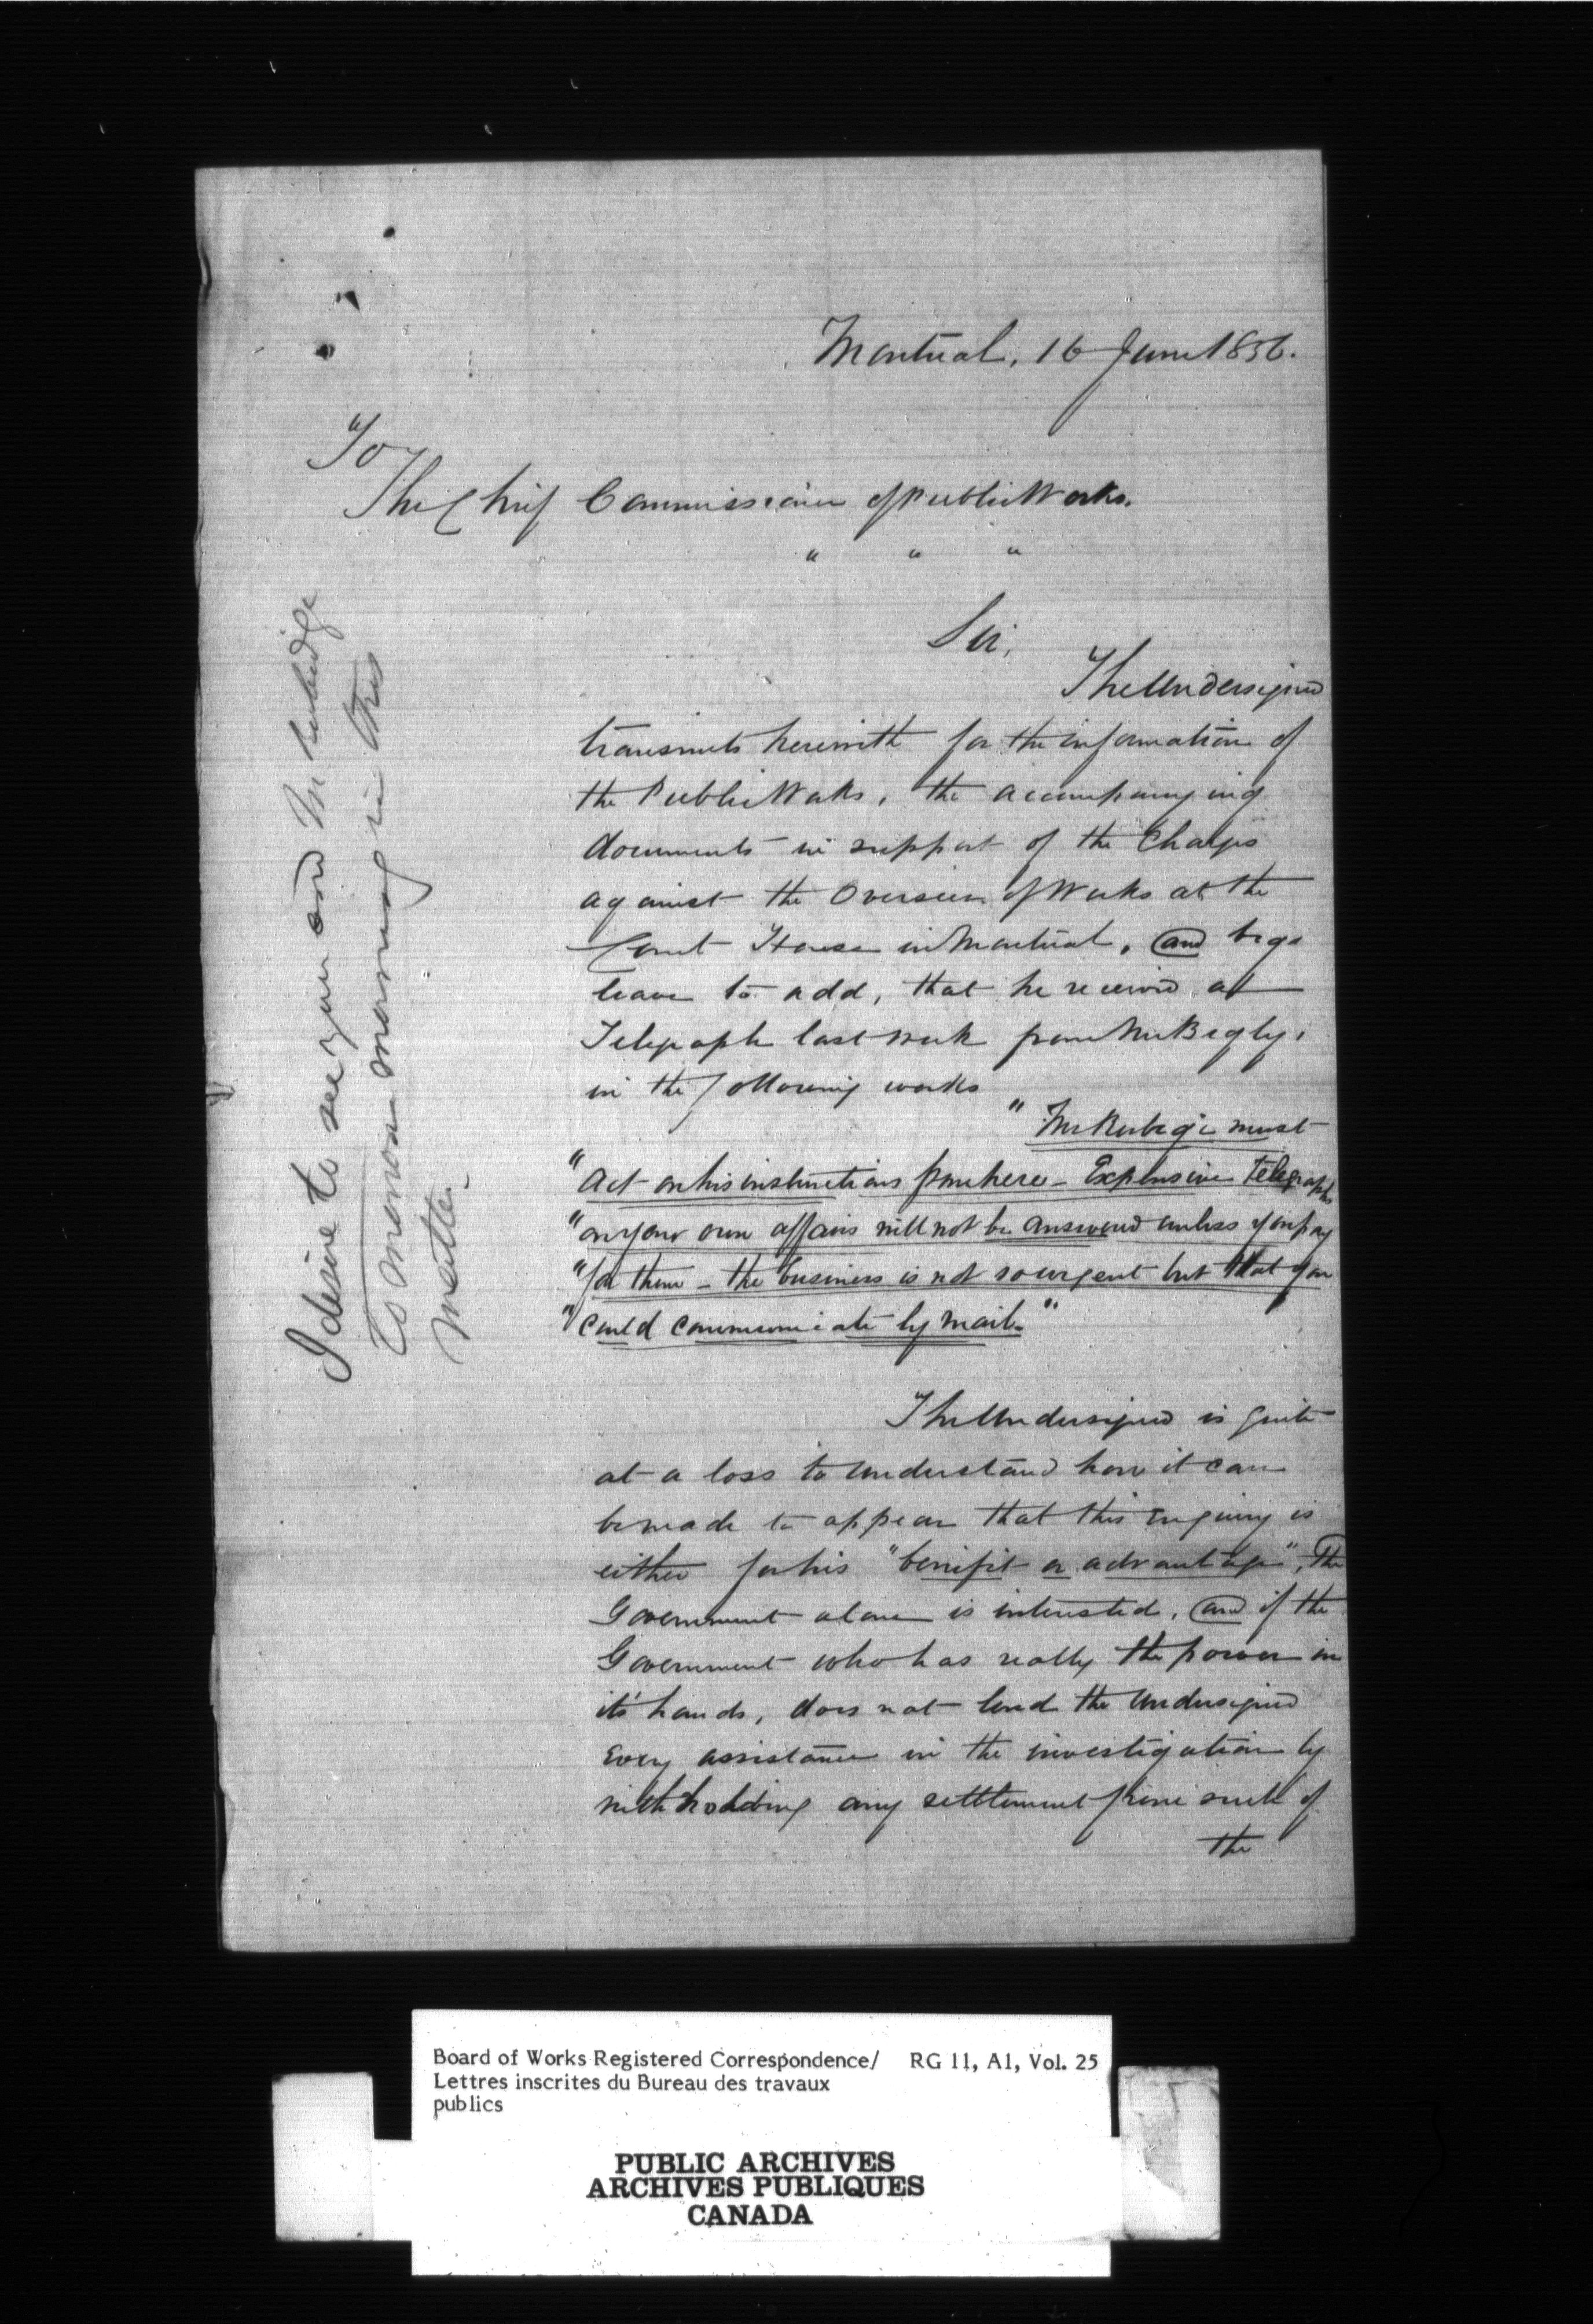 Montreal, 16 June 1856.
To
The Chief Commissioner of Public Works.
" " "
Sir,
The Undersigned
transmits herewith for the information of
the Public Works, the accompanying
documents in support of the Charges
against the Overseer of Works at the
Court House in Montreal, and begs
leave to add, that he received a
Telegraph last week from Mr Begly,
in the following words
"Mr Rubidge must
"Act on his instructions from here – Expensive Telegraphs
"on your own affairs will not be answered unless you pay
"for them – the business is not so urgent but that you
"could communicate by mail."
The Undersigned is quite
at a loss to understand how it can
be made to appear that this Enquiry is
either for his "benifit or advantage", The
Government alone is interested, and if the
Government who has really the power in
it's hands, does not lend the Undersigned
Every assistance in the investigation by
withholding any settlement from such of
the
I desire to see you and Mr Rubidge
to morrow morning in this
matter.
Board of Works Registered Correspondence/ RG 11, A1, Vol. 25
Lettres inscrites du Bureau des travaux
publics
PUBLIC ARCHIVES
ARCHIVES PUBLIQUES
CANADA